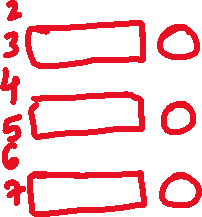 2
3
4
5
6
7